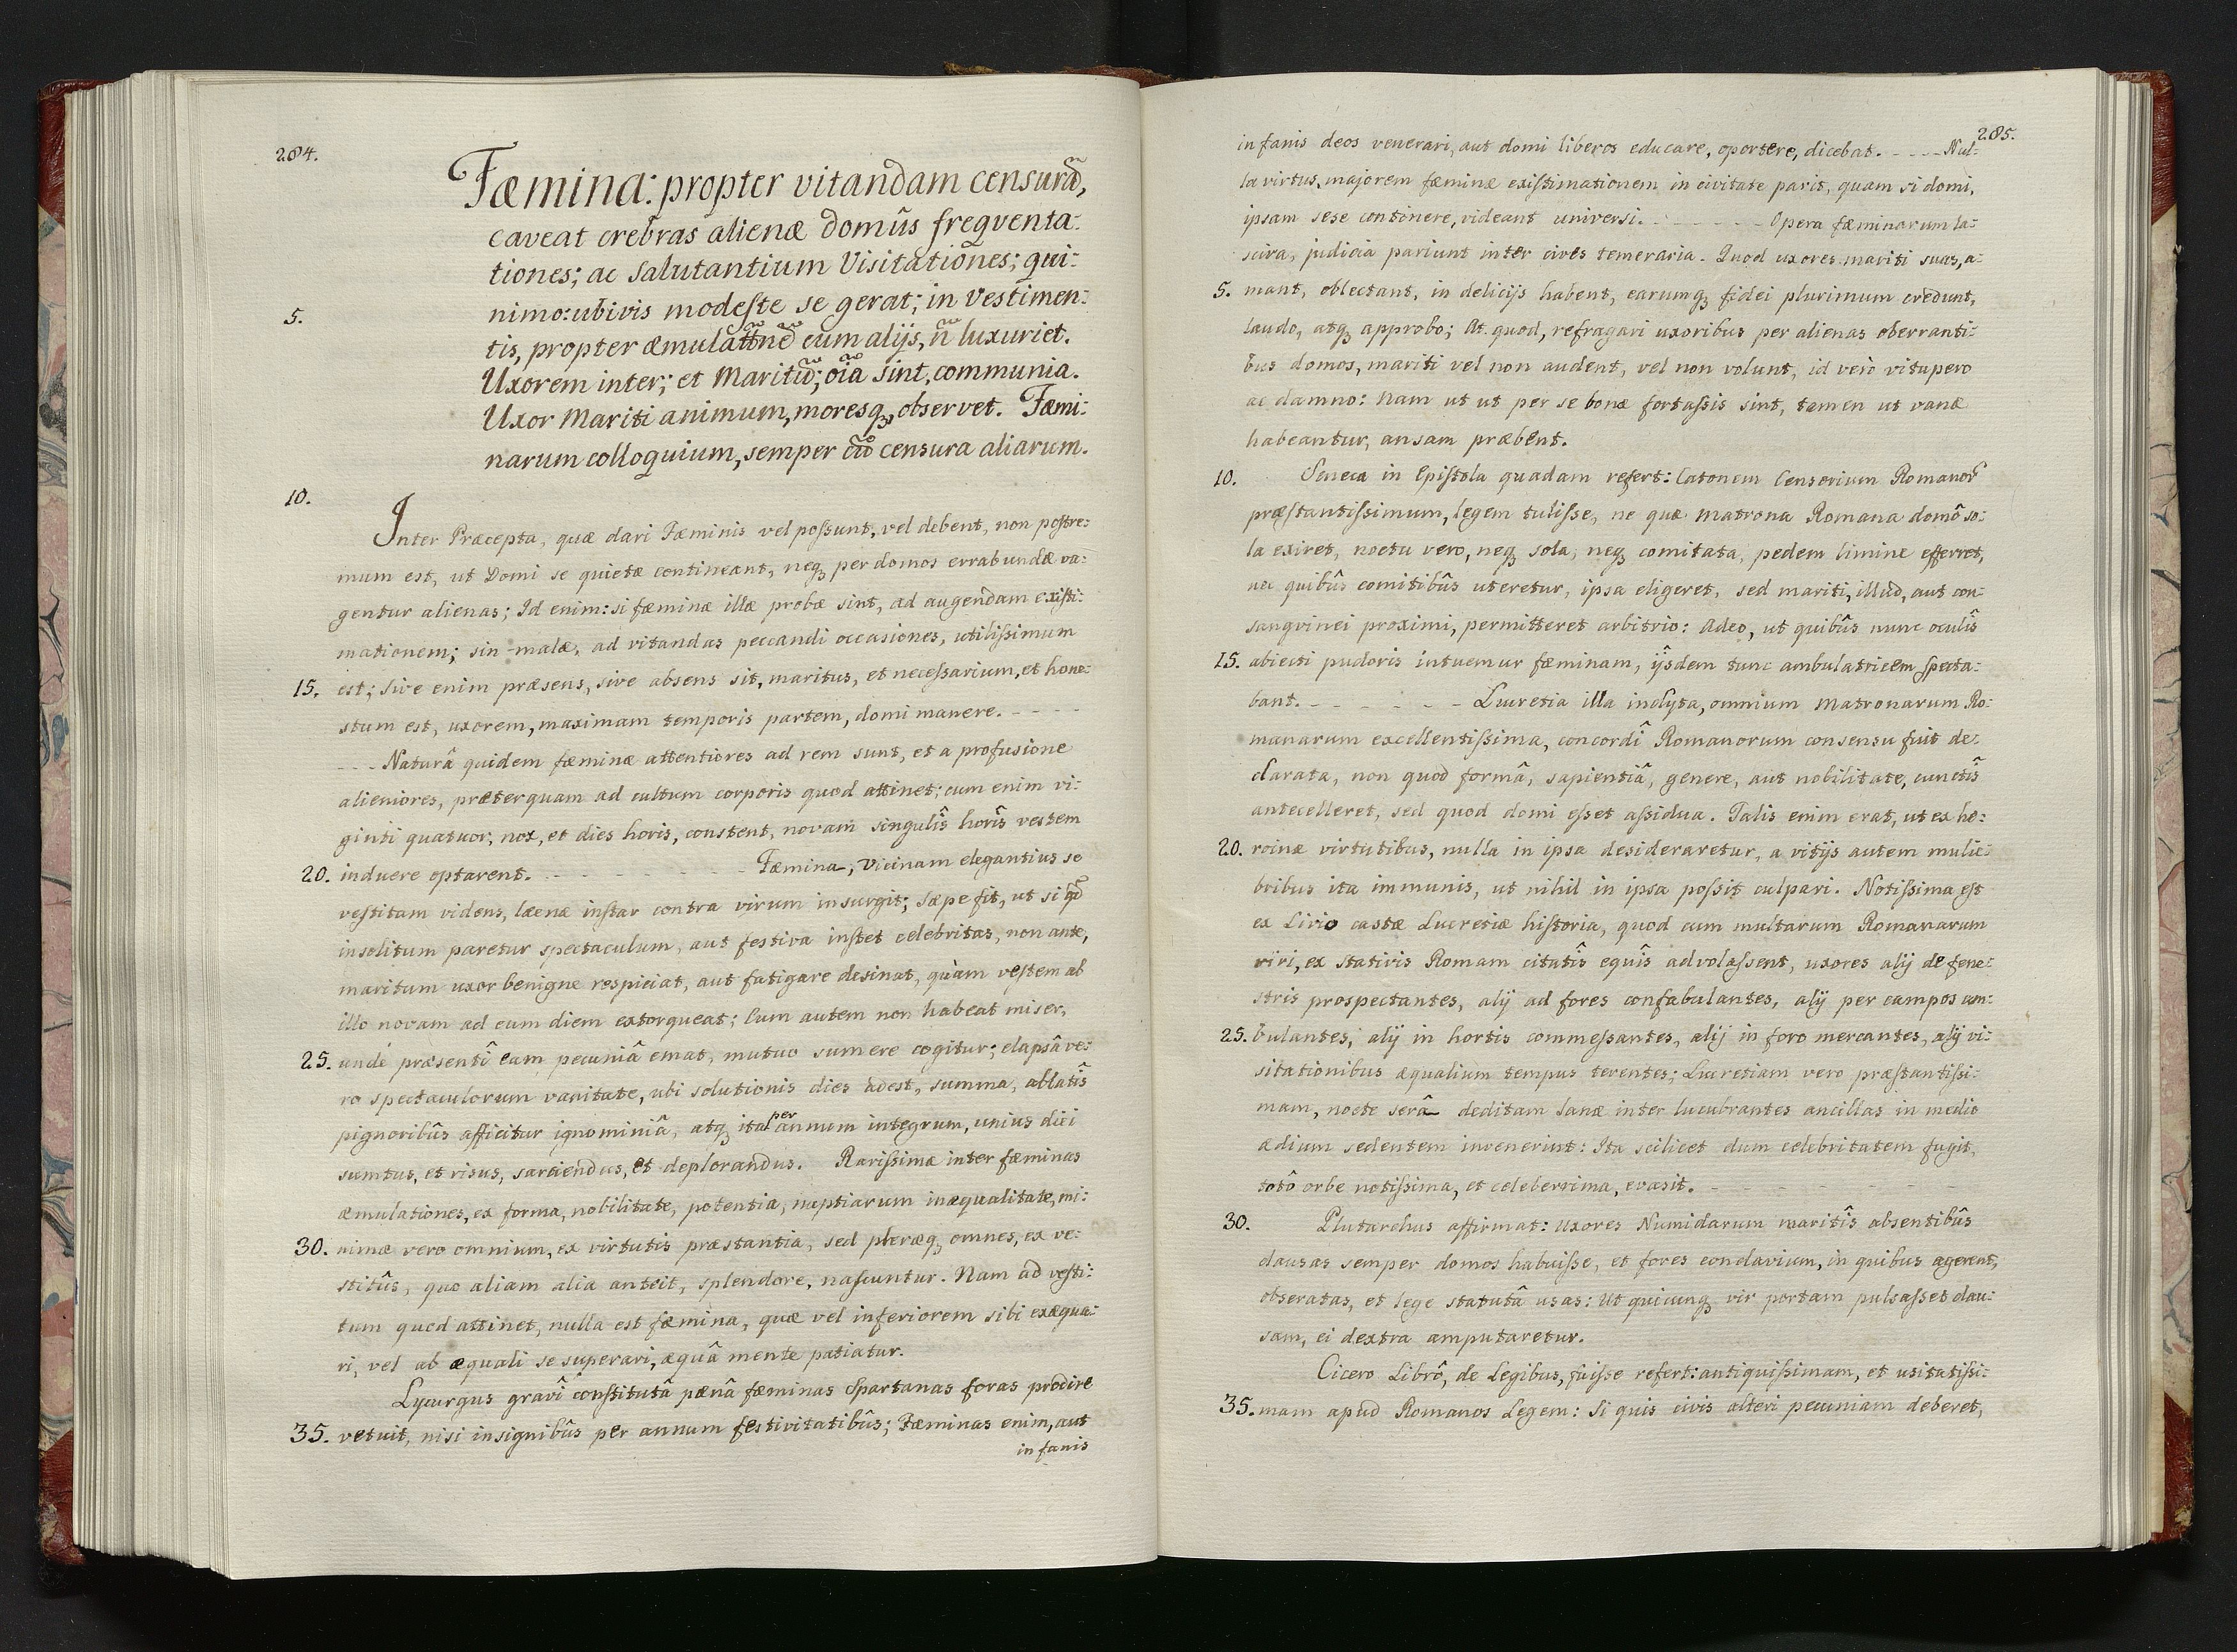 284.
Fæmina: propter vitandam censurã,
caveat crebras alienæ domûs freqventa:
tiones; ac Salutantium Visitationes; qui:
5. nimo: ubivis modeste se gerat; in Vestimen:
tis, propter æmulat̃tne cum alijs, ñ luxuriet.
Uxorem inter; et Maritũ; oĩa sint, communia.
Uxor Mariti animum, moresq, observet. Fæmi:
narum colloquium, semper cũ censura aliarum.
10. Inter Præcepta, quæ dari Fæminis vel possunt, vel debent, non postre:
mum est, ut Domi se quietæ contineant, neq, per domos errabundæ va:
gentur alienas; Id enim: si fæminæ illæ probæ sint, ad augendam existi:
mationem; sin malæ, ad vitandas peccandi occasiones, utilissimum
15. est; sive enim præsens, sive absens sit, maritus, et necessarium, et hone:
stum est, uxorem, maximam temporis partem, domi manere. - - - -
- - - Naturâ quidem fæminæ attentiores ad rem sunt, et a profusione
alieniores, præterquam ad cultum corporis quod attinet; cum enim vi:
ginti quatuor, nox, et dies horis, constent, novam singulîs horîs vestem
20. induere optarent. - - - - - - - - Fæmina, Vicinam elegantius se
vestitam videns, læenæ instar contra virum insurgit; sæpe fit, ut si qd̃
insolitum paretur spectaculum, aut festiva instet celebritas, non ante,
maritum uxor benigne respiciat, aut fatigare desinat, quàm vestem ab
illo novam ad eum diem extorqueat; Cum autem non habeat miser,
25. unde præsentî eam pecuniâ emat, mutuo sumere cogitur; elapsâ ve:
ro spectaculorum vanitate, ubi solutionis dies adest, summa, ablatîs
pignoribûs afficitur ignominiâ, atq, ita per annum integrum, unius diei
sumtus, et risus, sarciendus, et deplorandus. Rarissimæ inter fæminas
æmulationes, ex forma, nobilitate, potentia, nuptiarum inæqualitate, mi:
30. nimæ vero omnium, ex virtutis præstantia, sed pleræq, omnes, ex ve:
stitûs, quo aliam alia anteit, splendore, nascuntur. Nam ad vesti:
tum quod attinet, nulla est fæmina, quæ vel inferiorem sibi exæqua:
ri, vel ab æquali se superari, æquâ mente patiatur.
Lycurgus gravî constitutâ pænâ fæminas Spartanas foras prodire
35. vetuit, nisi insignibûs per annum festivitatibûs; Fæminas enim, aut
in fanis
285.
in fanis deos venerari, aut domi liberos educare, oportere, dicebat. - - - - Nul:
la virtus, majorem fæminæ existimationem in civitate parit, quam si domi,
ipsam sese continere, videant universi. - - - - - - Opera fæminarum la:
sciva, judicia pariunt inter cives temeraria. Quod uxores mariti suas, a:
5. mant, oblectant, in delicijs habent, earumq, fidei plurimum credunt,
laudo, atq, approbo; At quod, refragari uxoribus per alienas oberranti:
bus domos, mariti vel non audent, vel non volunt, id verò vitupero
ac damno: Nam ut ut per se bonæ fortassis sint, tamen ut vanæ
habeantur, ansam præbent.
10. Seneca in Epistola quadam refert: Catonem Censorium Romanor̃
præstantissimum, legem tulisse, ne quæ Matrona Romana domô so:
la exiret, noctu vero, neq, sola, neq, comitata, pedem limine efferret,
nec quibûs comitibûs uteretur, ipsa eligeret, sed mariti, illud, aut con:
sangvinei proximi, permitteret arbitrio: Adeo, ut quibûs nunc oculîs
15. abiecti pudoris intuemur fæminam, ijsdem tunc ambulatricem specta:
bant. - - - - - - Lucretia illa inclyta, omnium Matronarum Ro:
manarum excellentissima, concordî Romanorum consensu fuit de:
clarata, non quod formâ, sapientiâ, genere, aut nobilitate, cunctîs
antecelleret, sed quod domi esset assidua. Talis enim erat, ut ex he:
20. roinæ virtutibus, nulla in ipsa desideraretur, a vitijs autem mulie:
bribus ita immunis, ut nihil in ipsa possit culpari. Notissima est
ex Livio castæ Lucretiæ historia, quod cum multarum Romanarum
viri, ex stativis Romam citatîs equîs advolassent, uxores alij de fene:
stris prospectantes, alij ad fores confabulantes, alij per campos am:
25. bulantes, alij in hortis commessantes, alij in foro mercantes, alij vi:
sitationibus æqualium tempus terentes; Lucretiam vero præstantissi:
mam, nocte serâ deditam lanæ inter lucubrantes ancillas in medio
ædium sedentem invenerint: Ita scilicet dum celebritatem fugit,
totô orbe notissima, et celeberrima, evasit. - - - - - - -
30. Plutarchus affirmat: Uxores Numidarum maritîs absentibûs
clausas semper domos habuisse, et fores conclavium, in quibus agerent,
obseratas, et lege statutâ usas: Ut quicunq, vir portam pulsasset clau:
sam, ei dextra amputaretur.
Cicero Librô, de Legibus, fuisse refert: antiquissimam, et usitatissi:
35. mam apud Romanos Legem: Si quis civis alteri pecuniam deberet,